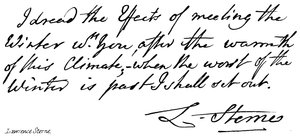 I dread the Effects of meeting the
Winter wth. You, after the warmth
of this Climate;-when the worst of the
Winter is past I shall set out.
L-Sterne
Lawrence Sterne